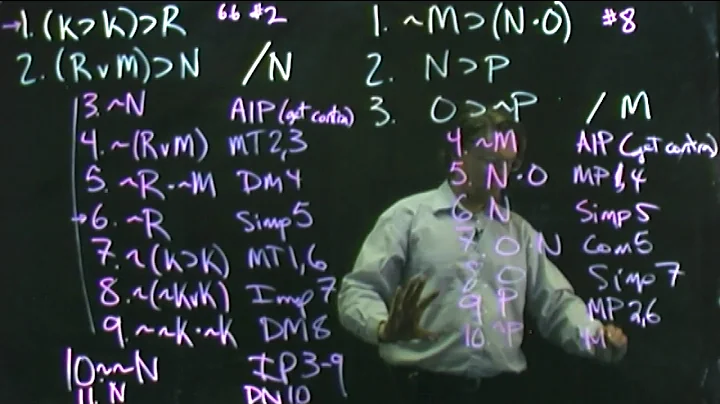 →1. (K>K)>R 66 #2
2. (RvM)>N /N
3. ~N AIP (get contra)
4. ~(RvM) MT 2,3
5. ~R·~M DM 4
→6. ~R Simp 5
7. ~(K>K) MT 1,6
8. ~(~KvK) Imp 7
9. ~~K·~K DM 8
10. ~~N IP 3-9
11. N DN 10
1. ~M>(N·O) #8
2. N>P
3. O>~P / M
4 ~M AIP (get contra)
5. N·O MP 1,4
6 N Simp 5
7. O·N Com 5
8 O Simp 7
9 P MP 2,6
10 ~P M